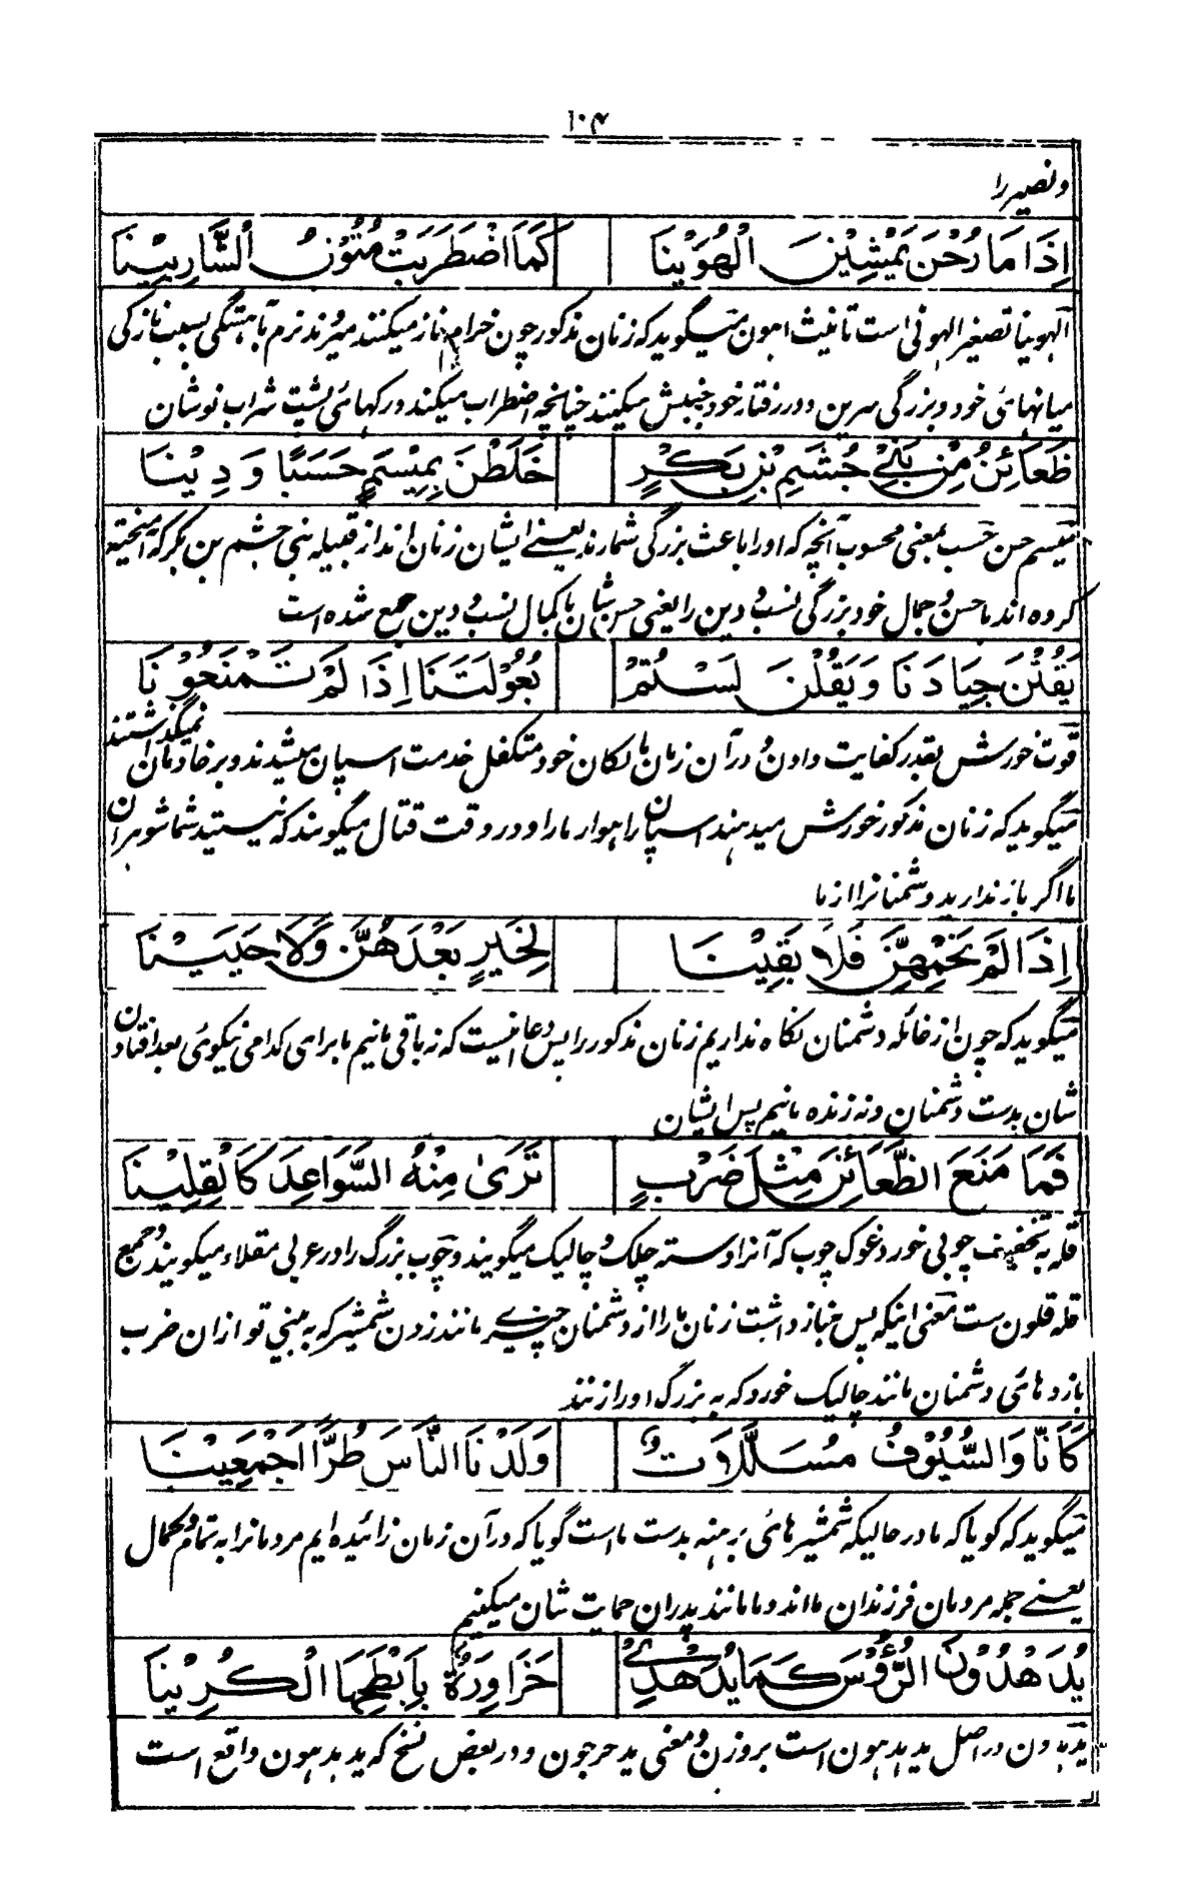 ۱۰۴
و نصیر را
اِذَا مَا رُحْنَ یَمْشِیْنَ الْهُوَیْنَا کَمَا اضْطَرَبَتْ مُتُوْنُ الشَّارِبِیْنَا
الهوینا تصغیر الهونی است تانیث اهون میگوید که زنان مذکور چون خرام ناز میکنند میروند نرم بآهستگی بسبب نازکی
میانهائی خود و بزرگی سرین و در رفتار خود جنبش میکنند چنانچه اضطراب میکند در کهائی پشت شراب نوشان
ظَعَائِنُ مِنْ بَنِیْ جُشَمِ بْنِ بَکْرٍ خَلَطْنَ بِمِیْسَمٍ حَسَبًا وَ دِیْنَا
میسم حسن حسب بمعنی محسوب آنچه که او را باعث بزرگی شمارند یعنے ایشان زنان اند از قبیله بنی جشم بن بکر که آمیخته
کرده اند با حسن و جمال خود بزرگی نسب و دین را یعنی حسن شان با کمال نسب و دین جمع شده است
یَقُتْنَ جِیَادَنَا وَ یَقُلْنَ لَسْتُمْ بُعُوْلَتَنَا اِذَا لَمْ تَمْنَعُوْنَا
قوت خورش بقدر کفایت دادن و در آن زمان مالکان خود متکفل خدمت اسپان میشدند و بر خادمان نمیگذاشتند
میگوید که زنان مذکور خورش میدهند اسپان راهوار ما را و در وقت قتال میگویند که نیستید شما شوهران
ما اگر باز ندارید دشمنانرا از ما
اِذَا لَمْ نَحْمِهِنَّ فَلَا بَقِیْنَا لِخَیْرٍ بَعْدَهُنَّ وَلَا حَیِیْنَا
میگوید که چون از غائله دشمنان نگاه نداریم زنان مذکور را پس دعا اینست که نه باقی مانیم ما برای کدامی نیکوئی بعد افتادن
شان بدست دشمنان و نه زنده مانیم پس ایشان
فَمَا مَنَعَ الظَّعَائِنَ مِثْلُ ضَرْبٍ تَرٰی مِنْهُ السَّوَاعِدَ کَالْقِلِیْنَا
قله به تخفیف چوبی خورد غوک چوب که آنرا دسته چلک و چالیک میگویند و چوب بزرگ را در عربی مقلاء میگویند و جمع
قله قلون ست معنی اینکه پس نباز داشت زنان ما را از دشمنان چیزے مانند زدن شمشیر که به بینی تو از ان ضرب
بازوهائی دشمنان مانند چالیک خورد که به بزرگ او را زنند
کَاَنَّا وَالسُّیُوْفُ مُسَلَّلَاتٌ وَلَدْنَا النَّاسَ طُرًّا اَجْمَعِیْنَا
میگوید که گویا که ما در حالیکه شمشیرهائی برهنه بدست ماست گویا که در آن زمان زائیده ایم مردمانرا به تمام و کمال
یعنے جمله مردمان فرزندان ما اند و ما مانند پدران حمایت شان میکنیم
یُدَهْدُوْنَ الرُّؤُسَ کَمَا یُدَهْدِیْ حَزَاوِرَةٌ بِاَبْطَحِهَا الْکُرِیْنَا
یدهدون در اصل یدهدهون است بروزن و معنی یدحرجون و در بعض نسخ که یدهدهون واقع است